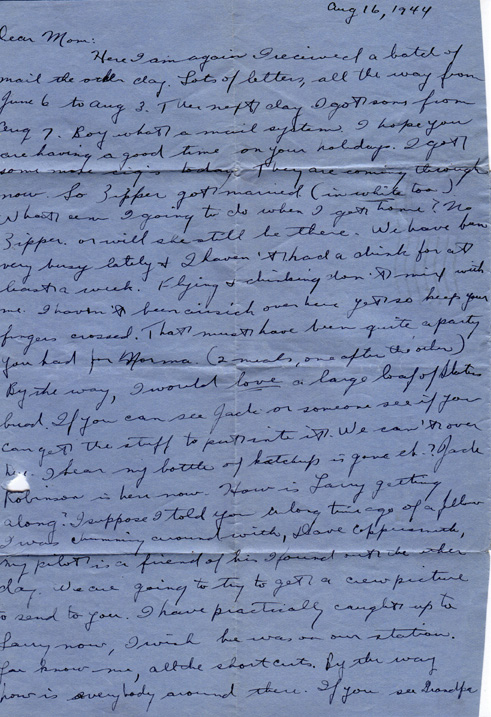 Aug 16, 1944
Dear Mom:
Here I am again I received a batch of
mail the other day. Lots of letters, all the way from
June 6 to Aug 3. The next day I got some from
Aug 7. Boy what a mail system. I hope you
are having a good time on your holidays. I got
some more cigs today. They are coming through
now. So Zipper got married (in white too)
What am I going to do when I get home? No
Zipper. or will she still be there. We have been
very busy lately & I haven't had a drink for at
least a week. Flying & drinking don't mix with
me. I haven't been airsick over here yet so keep your
fingers crossed. That must have been quite a party
you had for Norma (2 meals, one after the other)
By the way, I would love a large loaf of
bread. If you can see Jack or someone see if you
can get the stuff to put into it. We can't over
I hear my bottle of ketchup is gone eh? Jack
Robinson is here now. How is Larry getting
along? I suppose I told you a long time ago of a fellow
I was chumming around with, Dave Coppersmith,
my pilot is a friend of his I found out the other
day. We are going to try to get a crew picture
to send to you. I have practically caught up to
Larry now, I wish he was on our station.
You know me, all the short cuts. By the way
how is everybody around there. If you see Grandpa